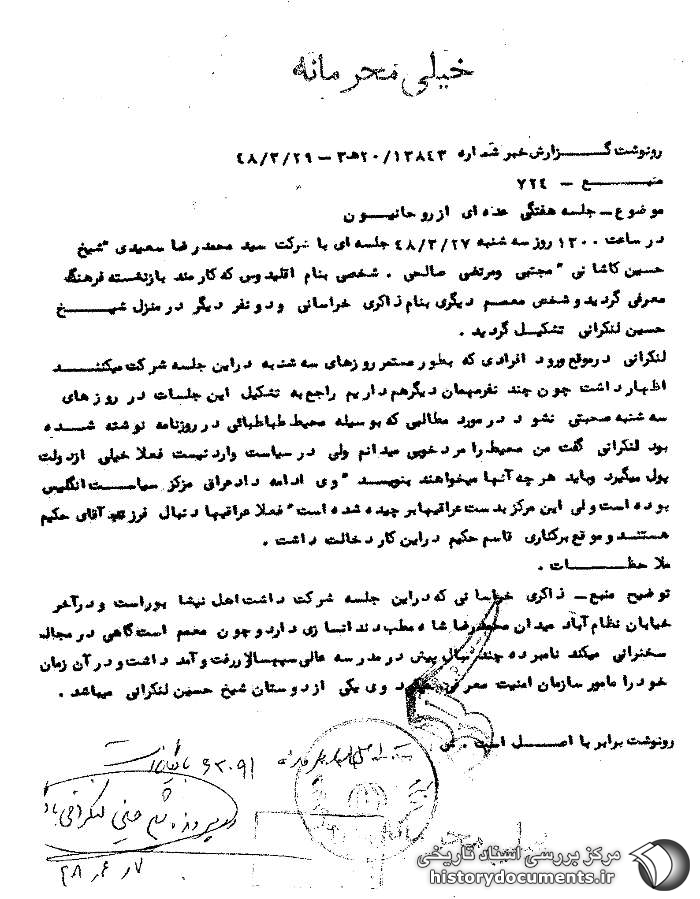 خیلی محرمانه
رونوشت گزارش خبر شماره ۲۰/۱۳۸۴۳هـ۳ – ۴۸/۳/۲۹
منبع – ۷۲۴
موضوع – جلسه هفتگی عده ای از روحانیون
در ساعت ۱۳۰۰ روز سه شنبه ۴۸/۳/۲۷ جلسه ای با شرکت سید محمدرضا سعیدی "شیخ
حسین کاشانی "مجتبی ومرتضی صالحی . شخصی بنام اقلیدوس که کارمند بازنشسته فرهنگ
معرفی گردید و شخص معمم دیگری بنام ذاکری خراسانی ودونفر دیگر در منزل شیخ
حسین لنکرانی تشکیل گردید .
لنکرانی درموقع ورود افرادی که بطور مستمر روزهای سه شنبه دراین جلسه شرکت میکنند
اظهار داشت چون چند نفرمیهمان دیگرهم داریم راجع به تشکیل این جلسات در روزهای
سه شنبه صحبتی نشود درمورد مطالبی که بوسیله محیط طباطبائی درروزنامه نوشته شده
بود لنکرانی گفت من محیط را مرد خوبی میدانم ولی در سیاست وارد نیست فعلا خیلی ازدولت
پول میگیرد وباید هرچه آنها میخواهند بنویسد "وی ادامه داد عراق مرکز سیاست انگلیس
بوده است ولی این مرکز بدست عراقیها برچیده شده است "فعلا عراقیها دنبال فرزند آقای حکیم
هستند و موقع برکناری قاسم حکیم دراین کار دخالت داشت .
ملاحظات .
توضیح منبع – ذاکری خراسانی که دراین جلسه شرکت داشت اهل نیشابوراست ودرآخر
خیابان نظام آباد میدان محمدرضا شاه مطب دندانسازی دارد و چون معمم است گاهی در مجالس
سخنرانی میکند نامبرده چند سال پیش در مدرسه عالی سپهسالار رفت و آمد داشت و در آن زمان
خود را مامور سازمان امنیت معرفی وی یکی ازدوستان شیخ حسین لنکرانی میباشد .
رونوشت برابر با اصل است .
۶۲۰۹۱
لنکرانی
مرکز بررسی اسناد تاریخی
historydocuments.ir